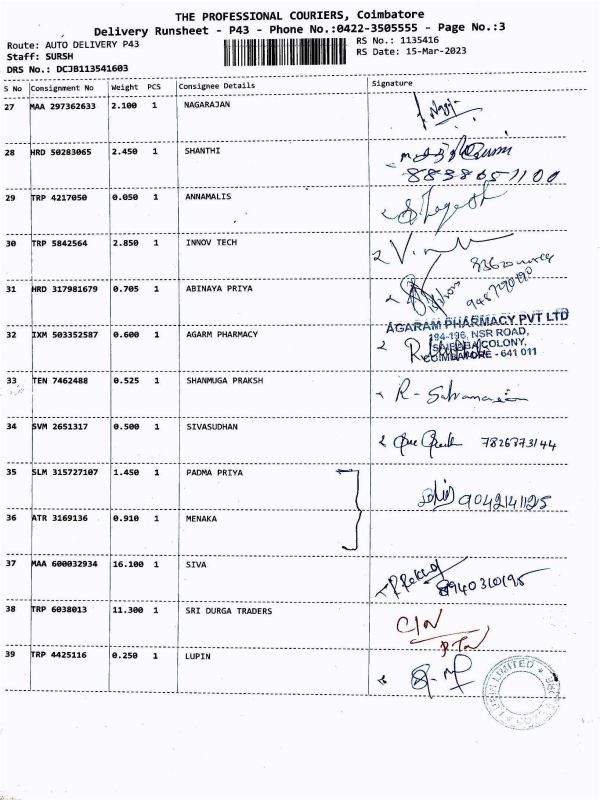 THE PROFESSIONAL COURIERS, Coimbatore
Delivery Runsheet - P43 - Phone No.:0422-3505555 - Page No.:3
Route: AUTO DELIVERY P43
RS No.: 1135416
Staff: SURSH
RS Date: 15-Mar-2023
DRS No.: DCJB113541603
S No Consignment No Weight PCS Consignee Details Signature
27 MAA 297362633 2.100 1 NAGARAJAN
28 HRD 50283065 2.450 1 SHANTHI
8838651100
29 TRP 4217050 0.050 1 ANNAMALIS
30 TRP 5842564 2.850 1 INNOV TECH
31 HRD 317981679 0.705 1 ABINAYA PRIYA
AGARAM PHARMACY PVT LTD
194-196, NSR ROAD,
32 IXM 503352587 0.600 1 AGARM PHARMACY
SAIBABA COLONY,
COIMBATORE - 641 011
33 TEN 7462488 0.525 1 SHANMUGA PRAKSH R-
34 SVM 2651317 0.500 1 SIVASUDHAN 7826773144
35 SLM 315727107 1.450 1 PADMA PRIYA
9042141125
36 ATR 3169136 0.910 1 MENAKA
37 MAA 600032934 16.100 1 SIVA
8940310195
38 TRP 6038013 11.300 1 SRI DURGA TRADERS
39 TRP 4425116 0.250 1 LUPIN
LUPIN LIMITED